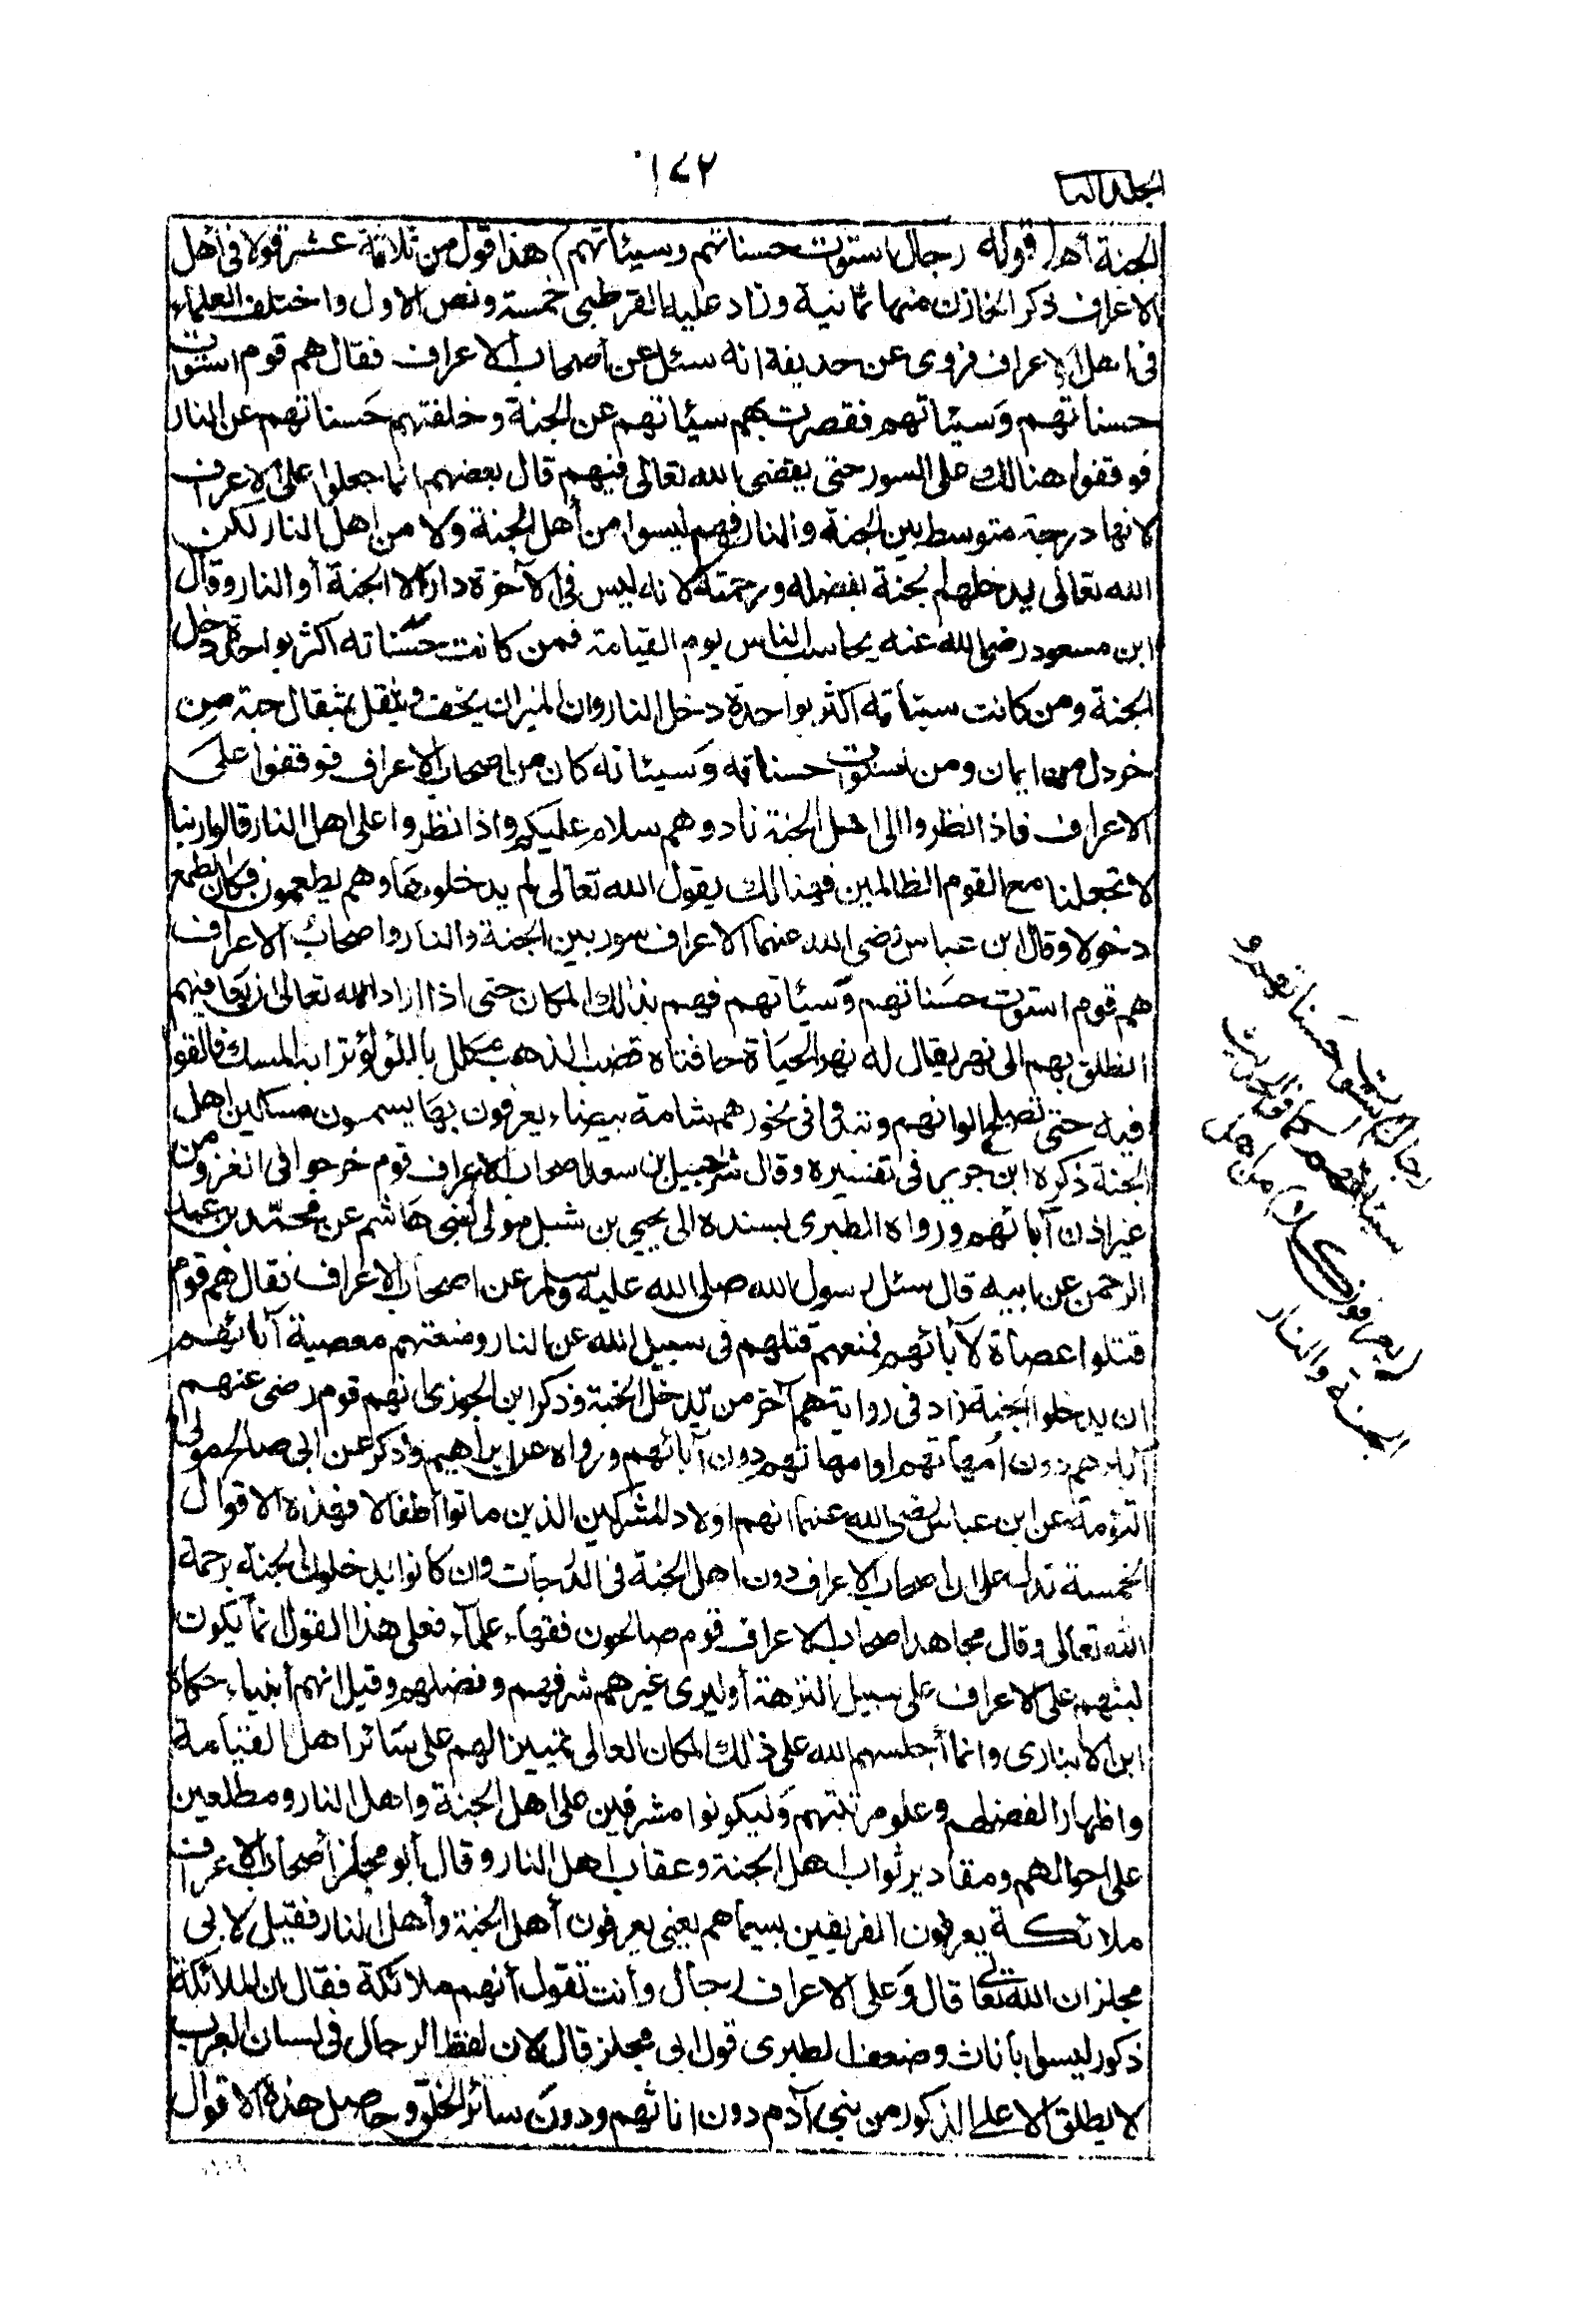 ١٤٢
الجلد الثا
الجنة أهل قوله رجال استوت حسناتهم وسيئاتهم) هذا قول من ثلاثة عشر قولا فى أهل
الاعراف ذكر الخازن منها ثمانية وزاد عليه القرطبى خمسة ونص الاول واختلف العلماء
فى اهل الاعراف فروى عن حذيفة انه سئل عن أصحاب الاعراف فقال هم قوم استوت
حسناتهم وسيئاتهم فقصرت بهم سيئاتهم عن الجنة وخلفتهم حسناتهم عن النار
فوقفوا هنالك على السور حتى يقضى الله تعالى فيهم قال بعضهم انما جعلوا على الاعراف
لانها درجة متوسط بين الجنة والنار فهم ليسوا من أهل الجنة ولا من اهل النار لكن
الله تعالى يدخلهم الجنة بفضله ورحمته لانه ليس فى الآخرة دار الا الجنة أو النار وقال
ابن مسعود رضى الله عنه يحاسب الناس يوم القيامة فمن كانت حسناته اكثر بواحدة دخل
الجنة ومن كانت سيئاته اكثر بواحدة دخل النار وان الميزان يخف ويثقل بمثقال حبة من
خردل من ايمان ومن استوت حسناته وسيئاته كان من اصحاب الاعراف فوقفوا على
الاعراف فاذا نظروا الى اهل الجنة نادوهم سلام عليكم واذا نظروا على اهل النار قالوا ربنا
لا تجعلنا مع القوم الظالمين فهنالك يقول الله تعالى لم يدخلوها وهم يطمعون فكان الطمع
دخولا وقال ابن عباس رضى الله عنهما الاعراف سور بين الجنة والنار واصحاب الاعراف
هم قوم استوت حسناتهم وسيئاتهم فهم بذالك المكان حتى اذا اراد الله تعالى ان يعافيهم
انطلق بهم الى نهر يقال له نهر الحياة حافتاه قضب الذهب مكلل باللؤلؤ ترابه المسك فالقوا
فيه حتى تصلح الوانهم وتبقى فى نحورهم شامة بيضاء يعرفون بها يسمون مساكين اهل
الجنة ذكره ابن جرير فى تفسيره وقال شرحبيل بن سعد اصحاب الاعراف قوم خرجوا فى الغزو من
غير اذن آبائهم ورواه الطبرى بسنده الى يحيى بن شبل مولى لبنى هاشم عن محمد بن عبد
الرحمن عن ابيه قال سئل رسول الله صلى الله عليه وسلم عن اصحاب الاعراف فقال هم قوم
قتلوا عصاة لآبائهم فمنعهم قتلهم فى سبيل الله عن النار ومنعتهم معصية آبائهم
ان يدخلوا الجنة زاد فى رواية هم آخر من يدخل الجنة وذكر ابن الجوزى انهم قوم رضى عنهم
آباؤهم دون أمهاتهم او امهاتهم دون آبائهم ورواه عن ابراهيم وذكر عن ابى صالح مولى
التؤمة عن ابن عباس رضى الله عنهما انهم اولاد المشركين الذين ماتوا اطفالا فهذه الاقوال
الخمسة تدل على ان اصحاب الاعراف دون اهل الجنة فى الدرجات وان كانوا يدخلون الجنة برحمة
الله تعالى وقال مجاهد اصحاب الاعراف قوم صالحون فقهاء علماء فعلى هذا القول انما يكون
لبثهم على الاعراف على سبيل النزهة أو ليرى غيرهم شرفهم وفضلهم وقيل انهم أنبياء حكاه
ابن الانبارى وانما أجلسهم الله على ذلك المكان العالى تمييزا لهم على سائر اهل القيامة
واظهارا لفضلهم وعلو مرتبتهم وليكونوا مشرفين على اهل الجنة واهل النار ومطلعين
على احوالهم ومقادير ثواب اهل الجنة وعقاب اهل النار وقال أبو مجلز أصحاب الاعراف
ملائكة يعرفون الفريقين بسيماهم يعنى يعرفون أهل الجنة وأهل النار فقيل لابى
مجلز ان الله تعالى قال وعلى الاعراف رجال وأنت تقول أنهم ملائكة فقال ان الملائكة
ذكور ليسوا باناث وضعف الطبرى قول ابى مجلز قال لان لفظ الرجال فى لسان العرب
لا يطلق الا على الذكور من بنى آدم دون اناثهم ودون سائر الخلق وحاصل هذه الاقوال
رجال استوت حسناتهم و
سيئاتهم
الجنة والنار